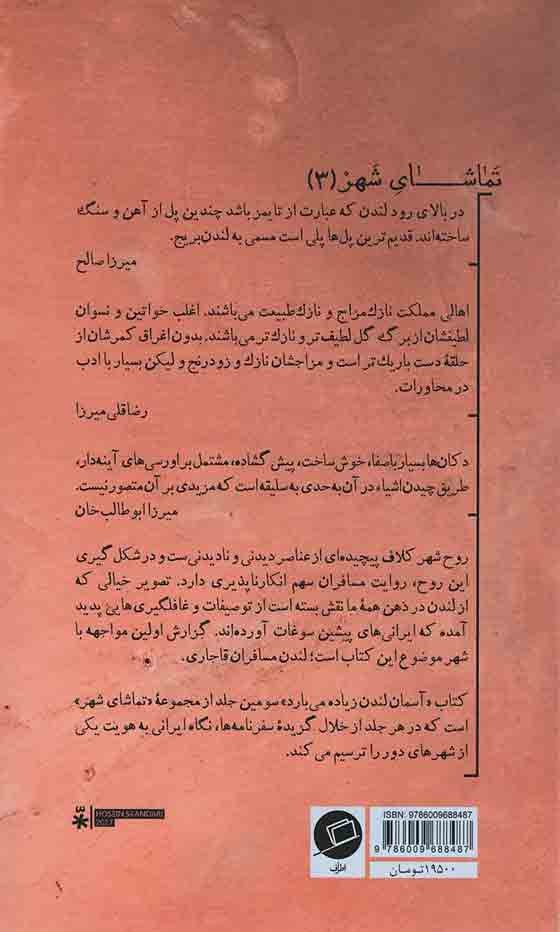 تماشای شهر (۳)
در بالای رود لندن که عبارت از تایمز باشد چندین پل از آهن و سنگ
ساخته‌اند. قدیم‌ترین پل‌ها پلی است مسمی به لندن‌بریج.
میرزا صالح
اهالی مملکت نازک‌مزاج و نازک‌طبیعت می‌باشند. اغلب خواتین و نسوان
لطیفشان از برگ گل لطیف‌تر و نازک‌تر می‌باشند. بدون اغراق کمرشان از
حلقهٔ دست باریک‌تر است و مزاجشان نازک و زودرنج و لیکن بسیار با ادب
در محاورات.
رضاقلی میرزا
دکان‌ها بسیار باصفا، خوش‌ساخت، پیش‌گشاده، مشتمل بر اورسی‌های آینه‌دار،
طریق چیدن اشیاء در آن به حدی به سلیقه است که مزیدی بر آن متصور نیست.
میرزا ابوطالب‌خان
روح شهر کلاف پیچیده‌ای از عناصر دیدنی و نادیدنی‌ست و در شکل‌گیری
این روح، روایت مسافران سهم انکارناپذیری دارد. تصویر خیالی که
از لندن در ذهن همهٔ ما نقش بسته است از توصیفات و غافلگیری‌هایی پدید
آمده که ایرانی‌های پیشین سوغات آورده‌اند. گزارش اولین مواجهه با
شهر موضوع این کتاب است؛ لندن مسافران قاجاری.
کتاب «آسمان لندن زیاده می‌بارد» سومین جلد از مجموعهٔ «تماشای شهر»
است که در هر جلد از خلال گزیدهٔ سفرنامه‌ها، نگاه ایرانی به هویت یکی
از شهرهای دور را ترسیم می‌کند.
HOSEIN ESKANDARI
2017
اطراف
ISBN: 9786009688487
9 786009 688487
۱۹۵۰۰ تومان